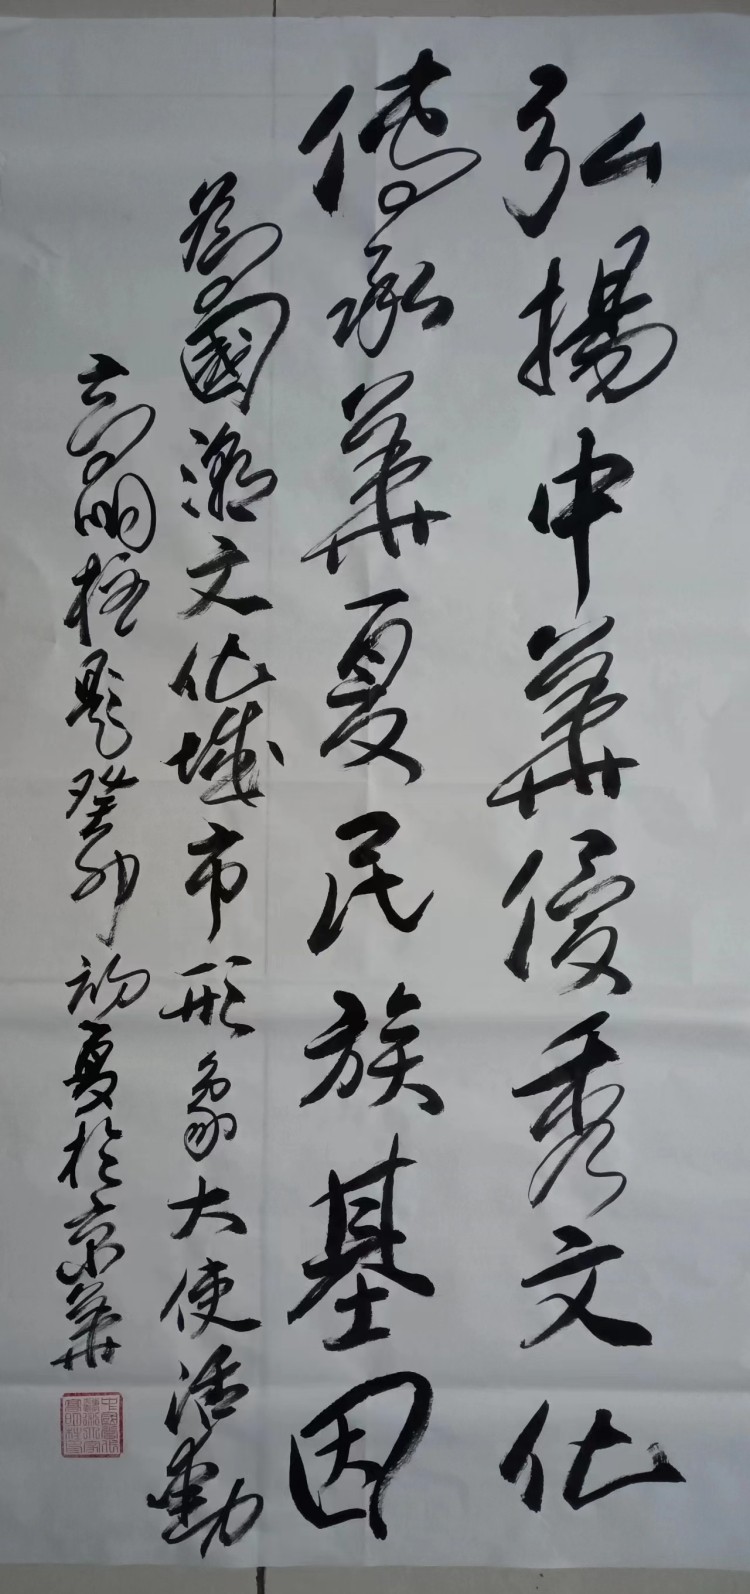 弘揚中華優秀文化
傳承華夏民族基因
為國潮文化城市形象大使活動
高明柱題癸卯初夏於京華